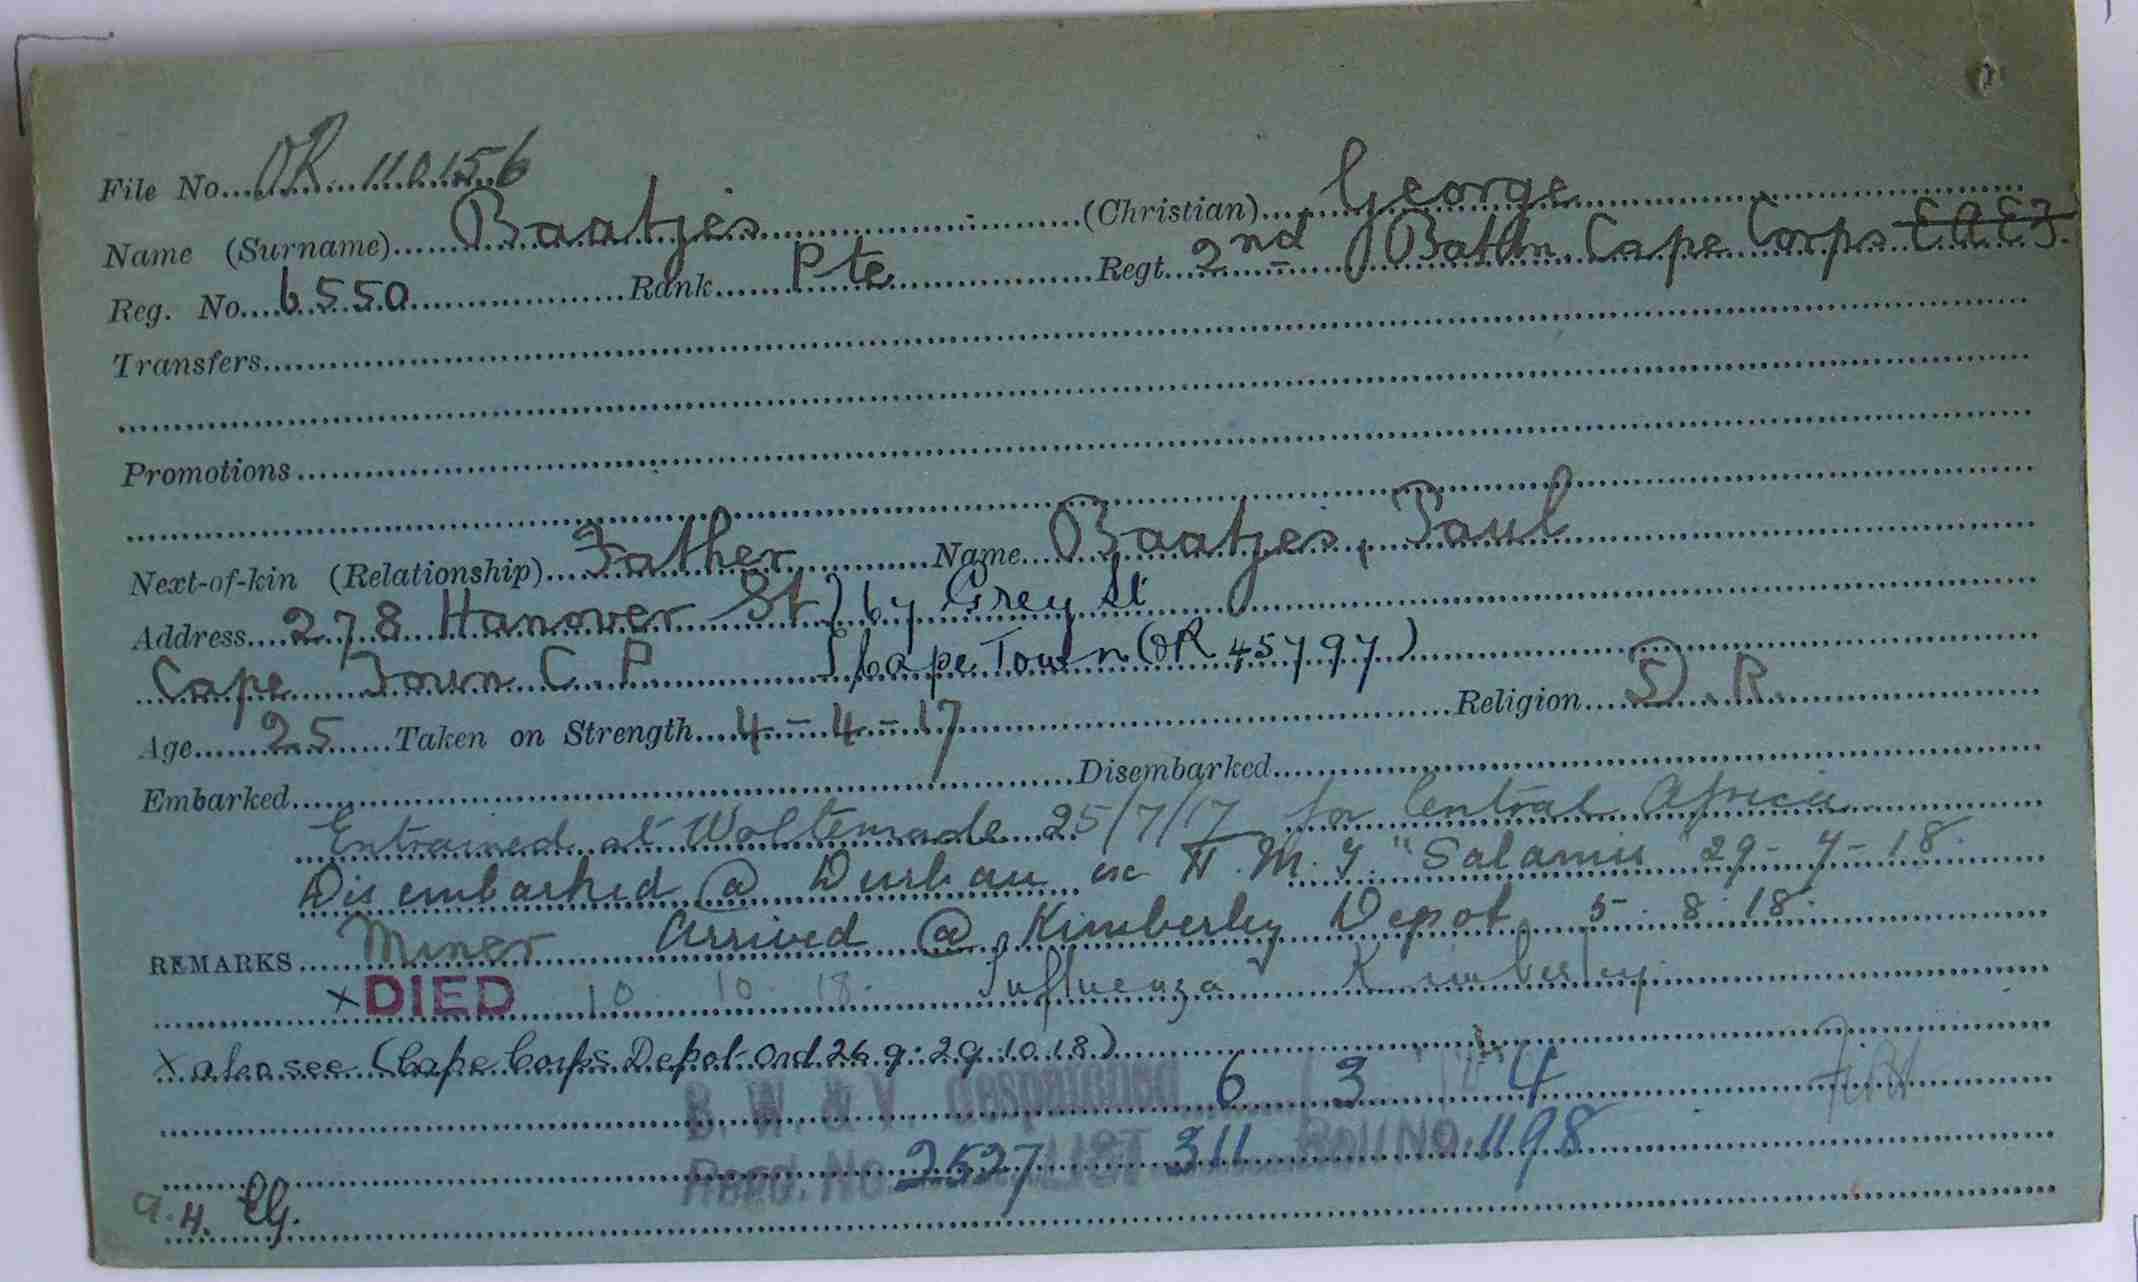 File No. OR 110156
Name (Surname) Baatjes (Christian) George
Reg. No. 6550 Rank Pte Regt. 2nd Battn Cape Corps E.A.E.F.
Transfers
Promotions
Next-of-kin (Relationship) Father Name Baatjes, Paul
Address 278 Hanover St } 67 Grey St
Cape Town C.P. } Cape Town (OR 45797)
Age 25 Taken on Strength 4-4-17 Religion D.R.
Embarked Disembarked
Entrained at Woltemade 25/7/17 for Central Africa
Disembarked @ Durban ex H.M.T. "Salamis" 29-7-18.
REMARKS Miner Arrived @ Kimberley Depot 5.8.18.
x DIED 10.10.18. Influenza Kimberley.
x also see (Cape Corps Depot Ord. 269: 29.10.18.)
B. W. & V. despatched 6 3 4
Regd. No. 2527 LIST 311 Roll No. 1198
a.H.